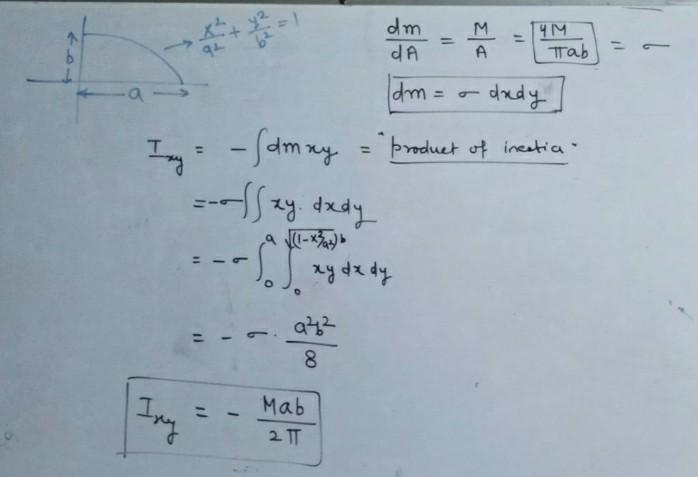 x²/a² + y²/b² = 1
b
a
dm/dA = M/A = 4M/πab = σ
dm = σ dxdy
I_xy = -∫dm xy = "product of inertia"
= -σ∫∫ xy. dxdy
= -σ ∫₀^a ∫₀^(√(1-x²/a²) b) xy dx dy
= -σ · a²b²/8
I_xy = - Mab/2π